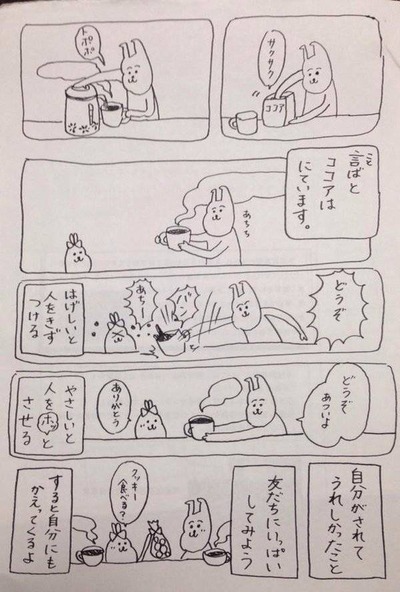 サクサク
ココア
トポポポ
言ばと
こと
ココアは
にています。
あちち
どうぞ
あちー
はげしいと
人をきず
つける
どうぞ
あついよ
ありがとう
やさしいと
人をホッと
させる
自分がされて
うれしかったこと
友だちにいっぱい
してみよう
クッキー
食べる?
すると自分にも
かえってくるよ